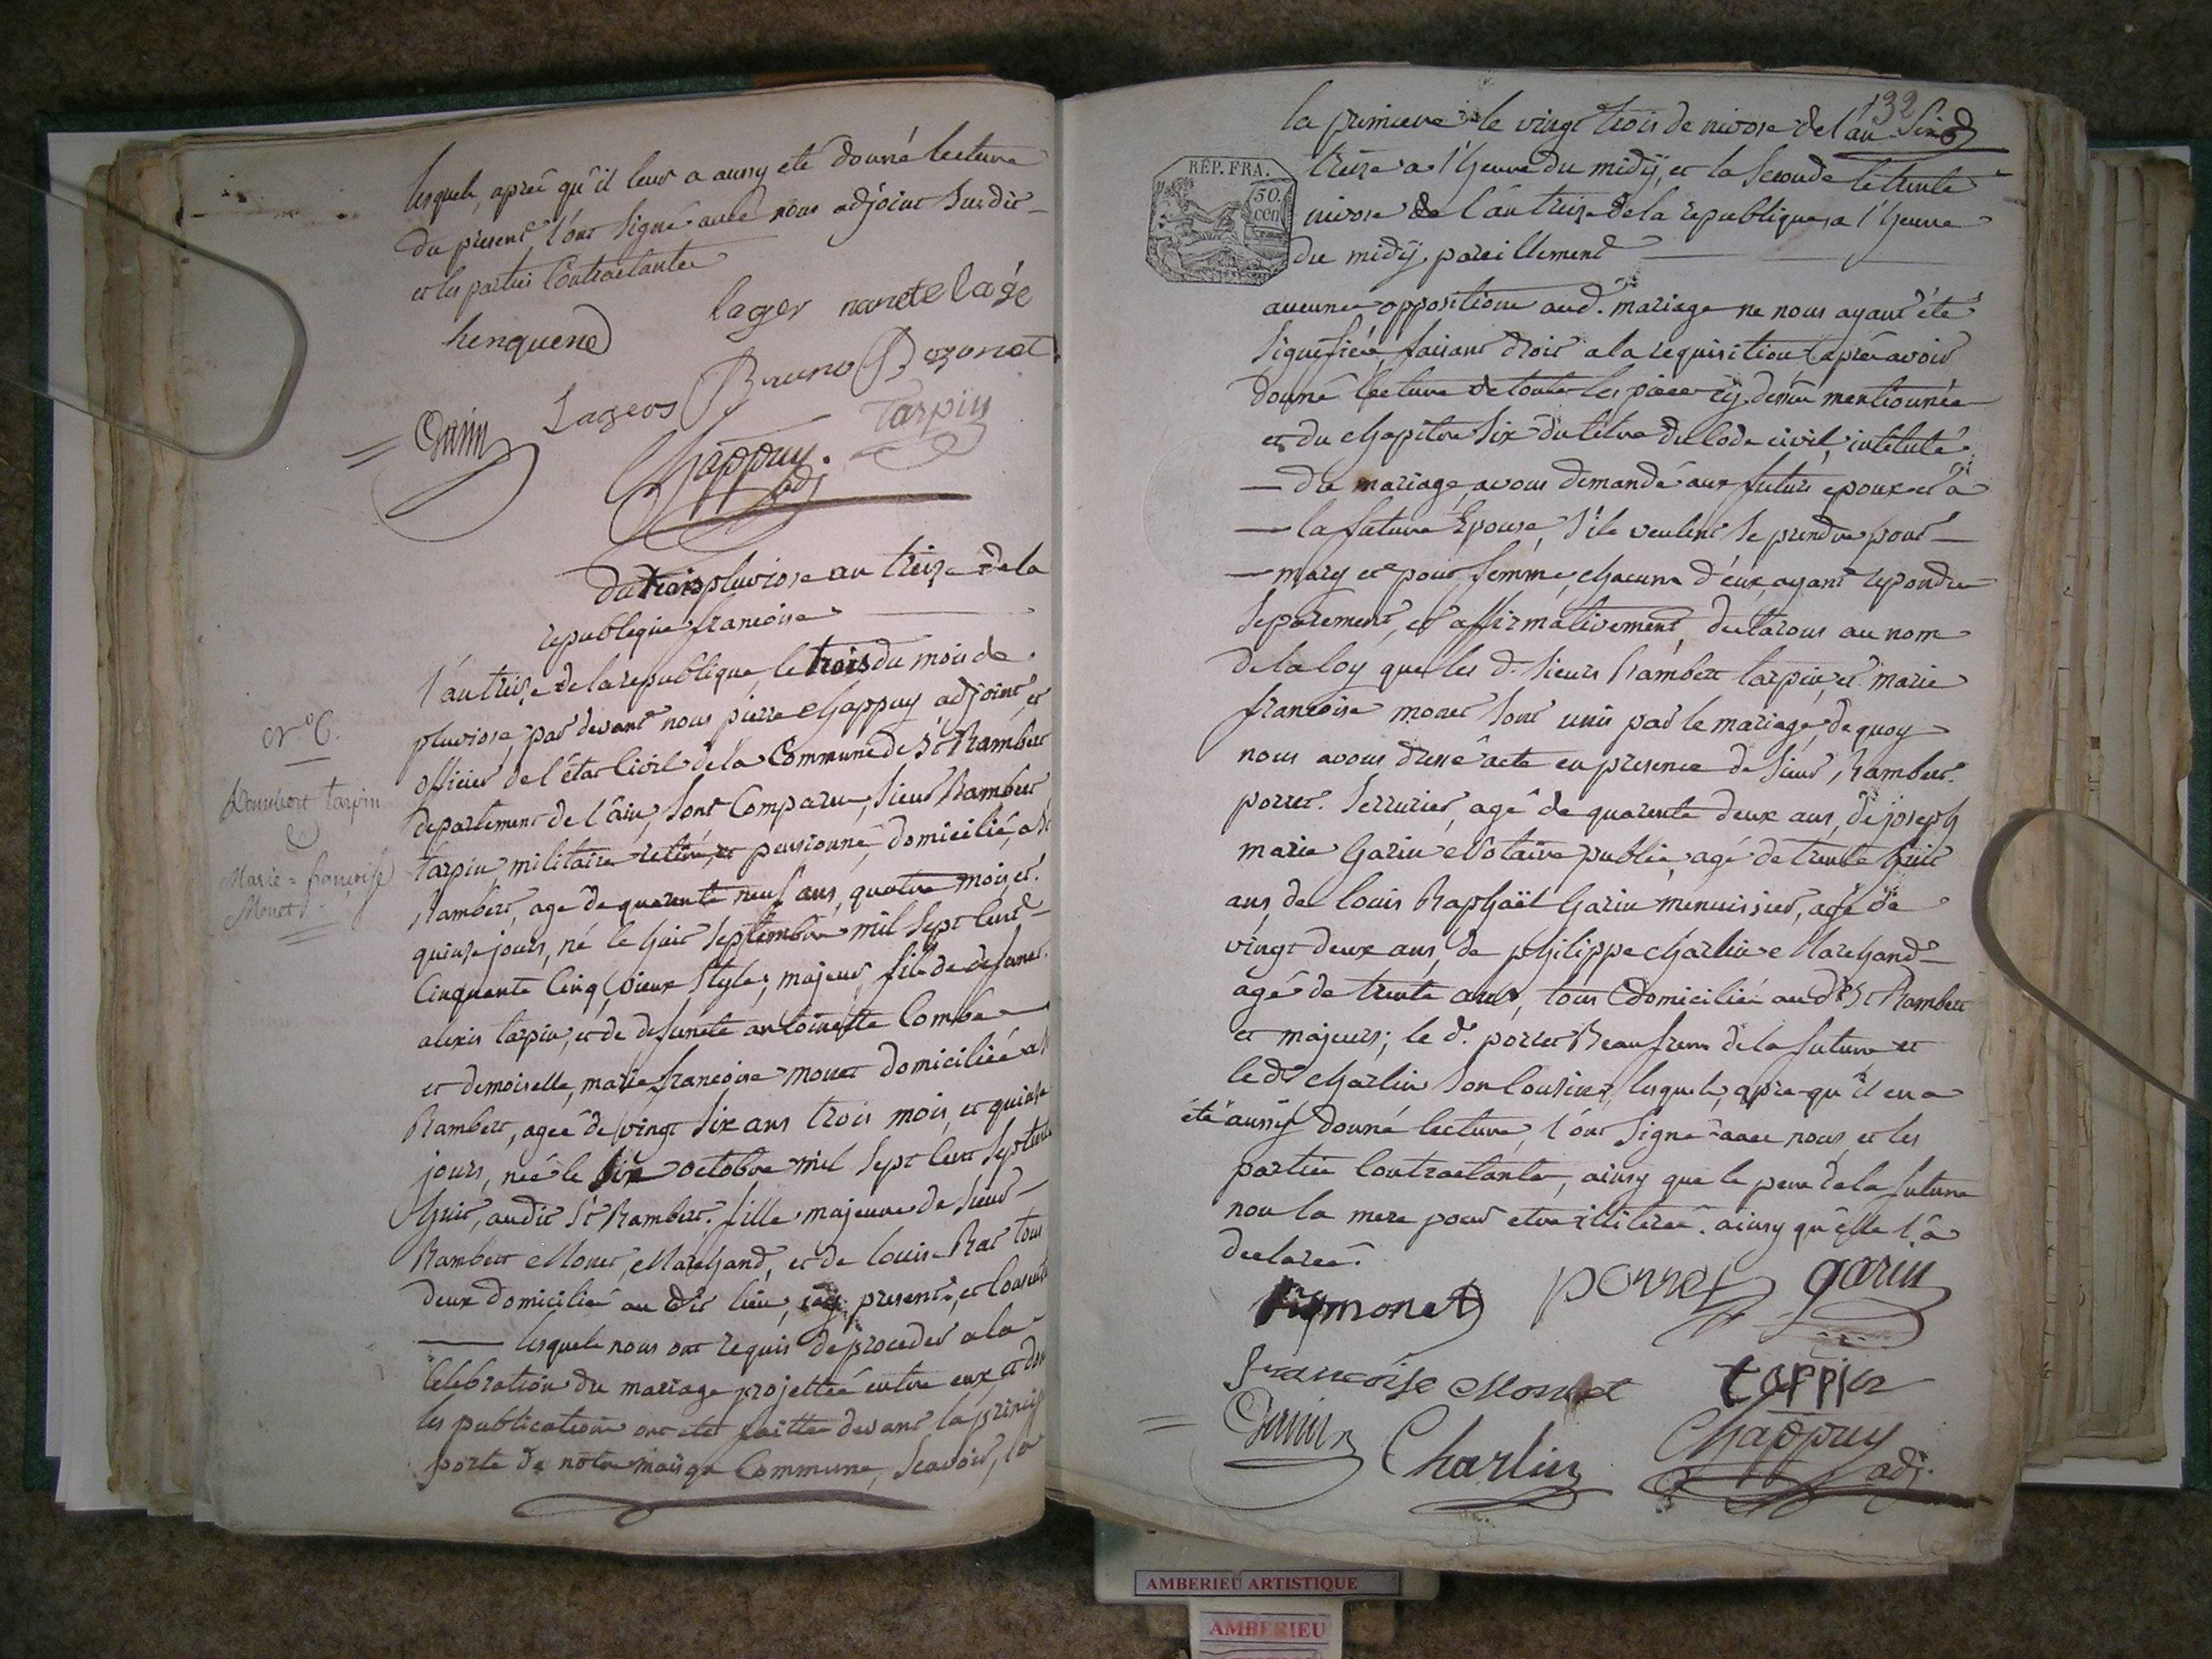 lesquels, aprés qu'il leur a aussy été donné lecture
du present, l'ont signé avec nous adjoint susdit
et les parties Contractantes
henquene lager nanete lagé
Lagers Bruno Bozonet
Garin Chappuy. Tarpin
adj
Du trois pluviose an treize de la
republique francoise
l'an treize de la republique, le trois du mois de
pluviose, par devant nous pierre Chappuy adjoint, et
officier de l'état Civil de la Commune de St Rambert
departement de l'ain, sont Comparus, sieur Rambert
tarpin, militaire retiré, et pensionné, domicilié, a St
Rambert, agé de quarente neuf ans, quatre mois, et
quinze jours, né le huit septembre mil sept cent
Cinquante Cinq, vieux style, majeur, fils de defunct
alexis tarpin, et de defuncte antoinette Combe
et demoiselle, marie francoise monet domiciliée a St
Rambert, ageé de vingt six ans trois mois, et quinze
jours, née le six octobre mil sept cent septente
huit, audit St Rambert. fille majeure de sieur
Rambert Monet, Marchand, et de louise Rat tous
deux domicilié au dit lieu, icy present, et Consente
lesquels nous ont requis de proceder a la
Celebration du mariage projettée entre eux et dont
les publications ont eté faittes devant la princip
porte de notre maison Commune, Scavoir, la
N.o 6.
Rambert tarpin
&
Marie = françoise
Monet.
132
la premiere le vingt trois de nivose de l'an
treize a l'heure du midÿ, et la seconde le trente
nivose de l'an treize de la republique, a l'heure
du midÿ, pareillement
RÉP. FRA.
50.
cen
aucune opposition aud. mariage ne nous ayant été
signefiée, faisant droit a la requisition, aprés avoir
donné lecture de toutes les pieces cÿ-dessus mentionnée
et du chapitre six du titre du Code civil, intitulé
du mariage, avons demandé aux futurs epoux et a
la future Epouse, s'ils veulent se prendre pour
mary et pour femme, chacune d'eux, ayant repondu
separement, et affirmativement, declarons au nom
de la loy que les d. sieurs Rambert tarpin, et marie
francoise monet sont unis par le mariage, de quoy
nous avons dressé acte en presence de sieur, Rambert
porret. serrurier, agé de quarente deux ans, de joseph
marie Garin Notaire public, agé de trente huit
ans, de louis Raphaël Garin menuissier, agé de
vingt deux ans, de philippe charlin Marchand
agé de trente ans, tous Domicilié aud. St Rambert
et majeurs; le d. porret Beau frere de la future et
le d. charlin son Cousin, lesquels, aprés qu'il en a
été aussy donné lecture, l'ont signé avec nous, et les
parties Contractantes, ainsy que le pere de la future
non la mere pour etre illiterée. ainsy qu'elle l'a
declareé.
monet porret garin
francoise Monet tarpin
Garin Charlin Chappuy
adj.
AMBERIEU ARTISTIQUE
AMBERIEU